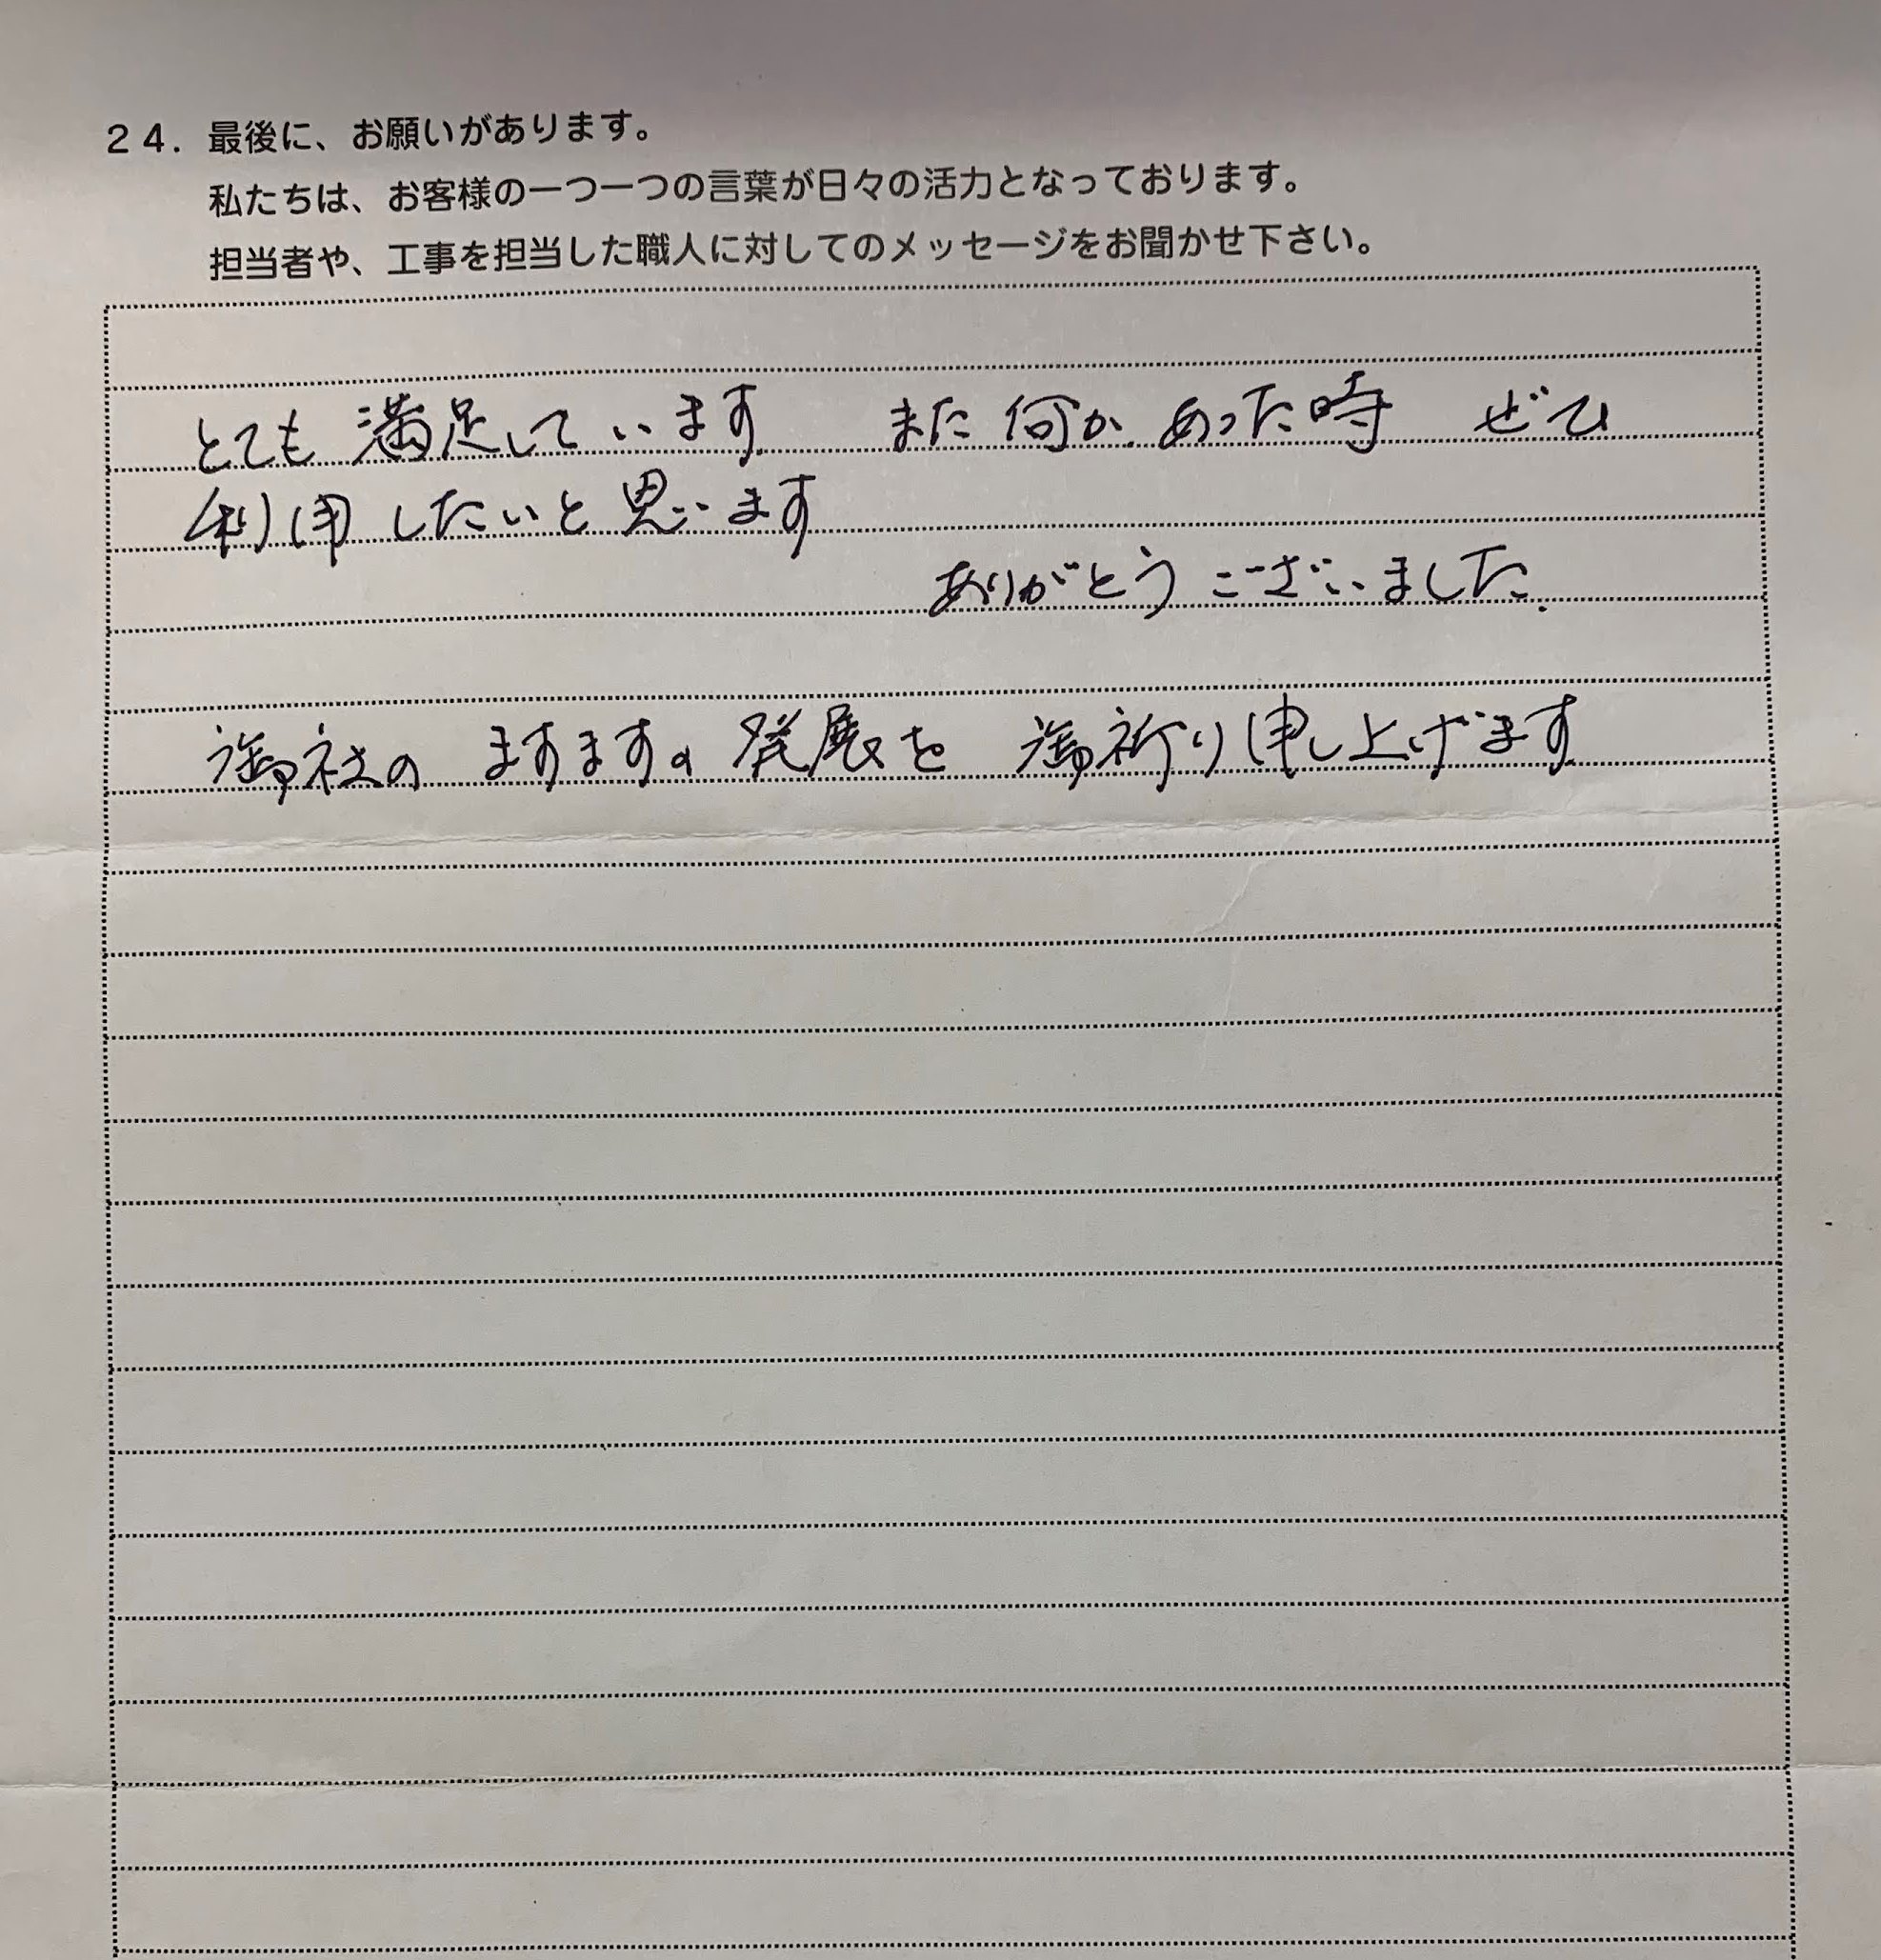 24. 最後に、お願いがあります。
私たちは、お客様の一つ一つの言葉が日々の活力となっております。
担当者や、工事を担当した職人に対してのメッセージをお聞かせ下さい。
とても満足しています また何かあった時 ぜひ
利用したいと思います
ありがとうございました.
御社の ますますの発展を 御祈り申し上げます